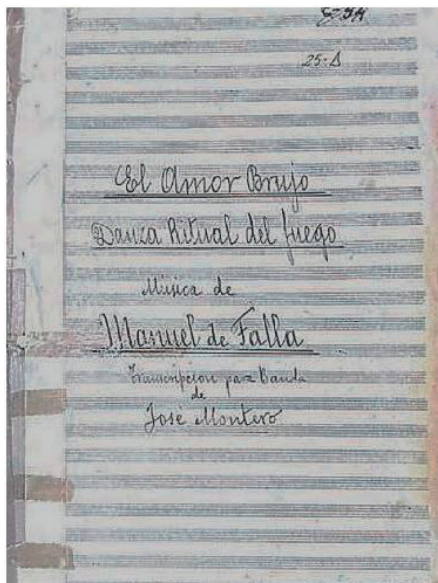 25-A
El Amor Brujo
Danza Ritual del fuego
Música de
Manuel de Falla
Transcripción para Banda
de
José Montero